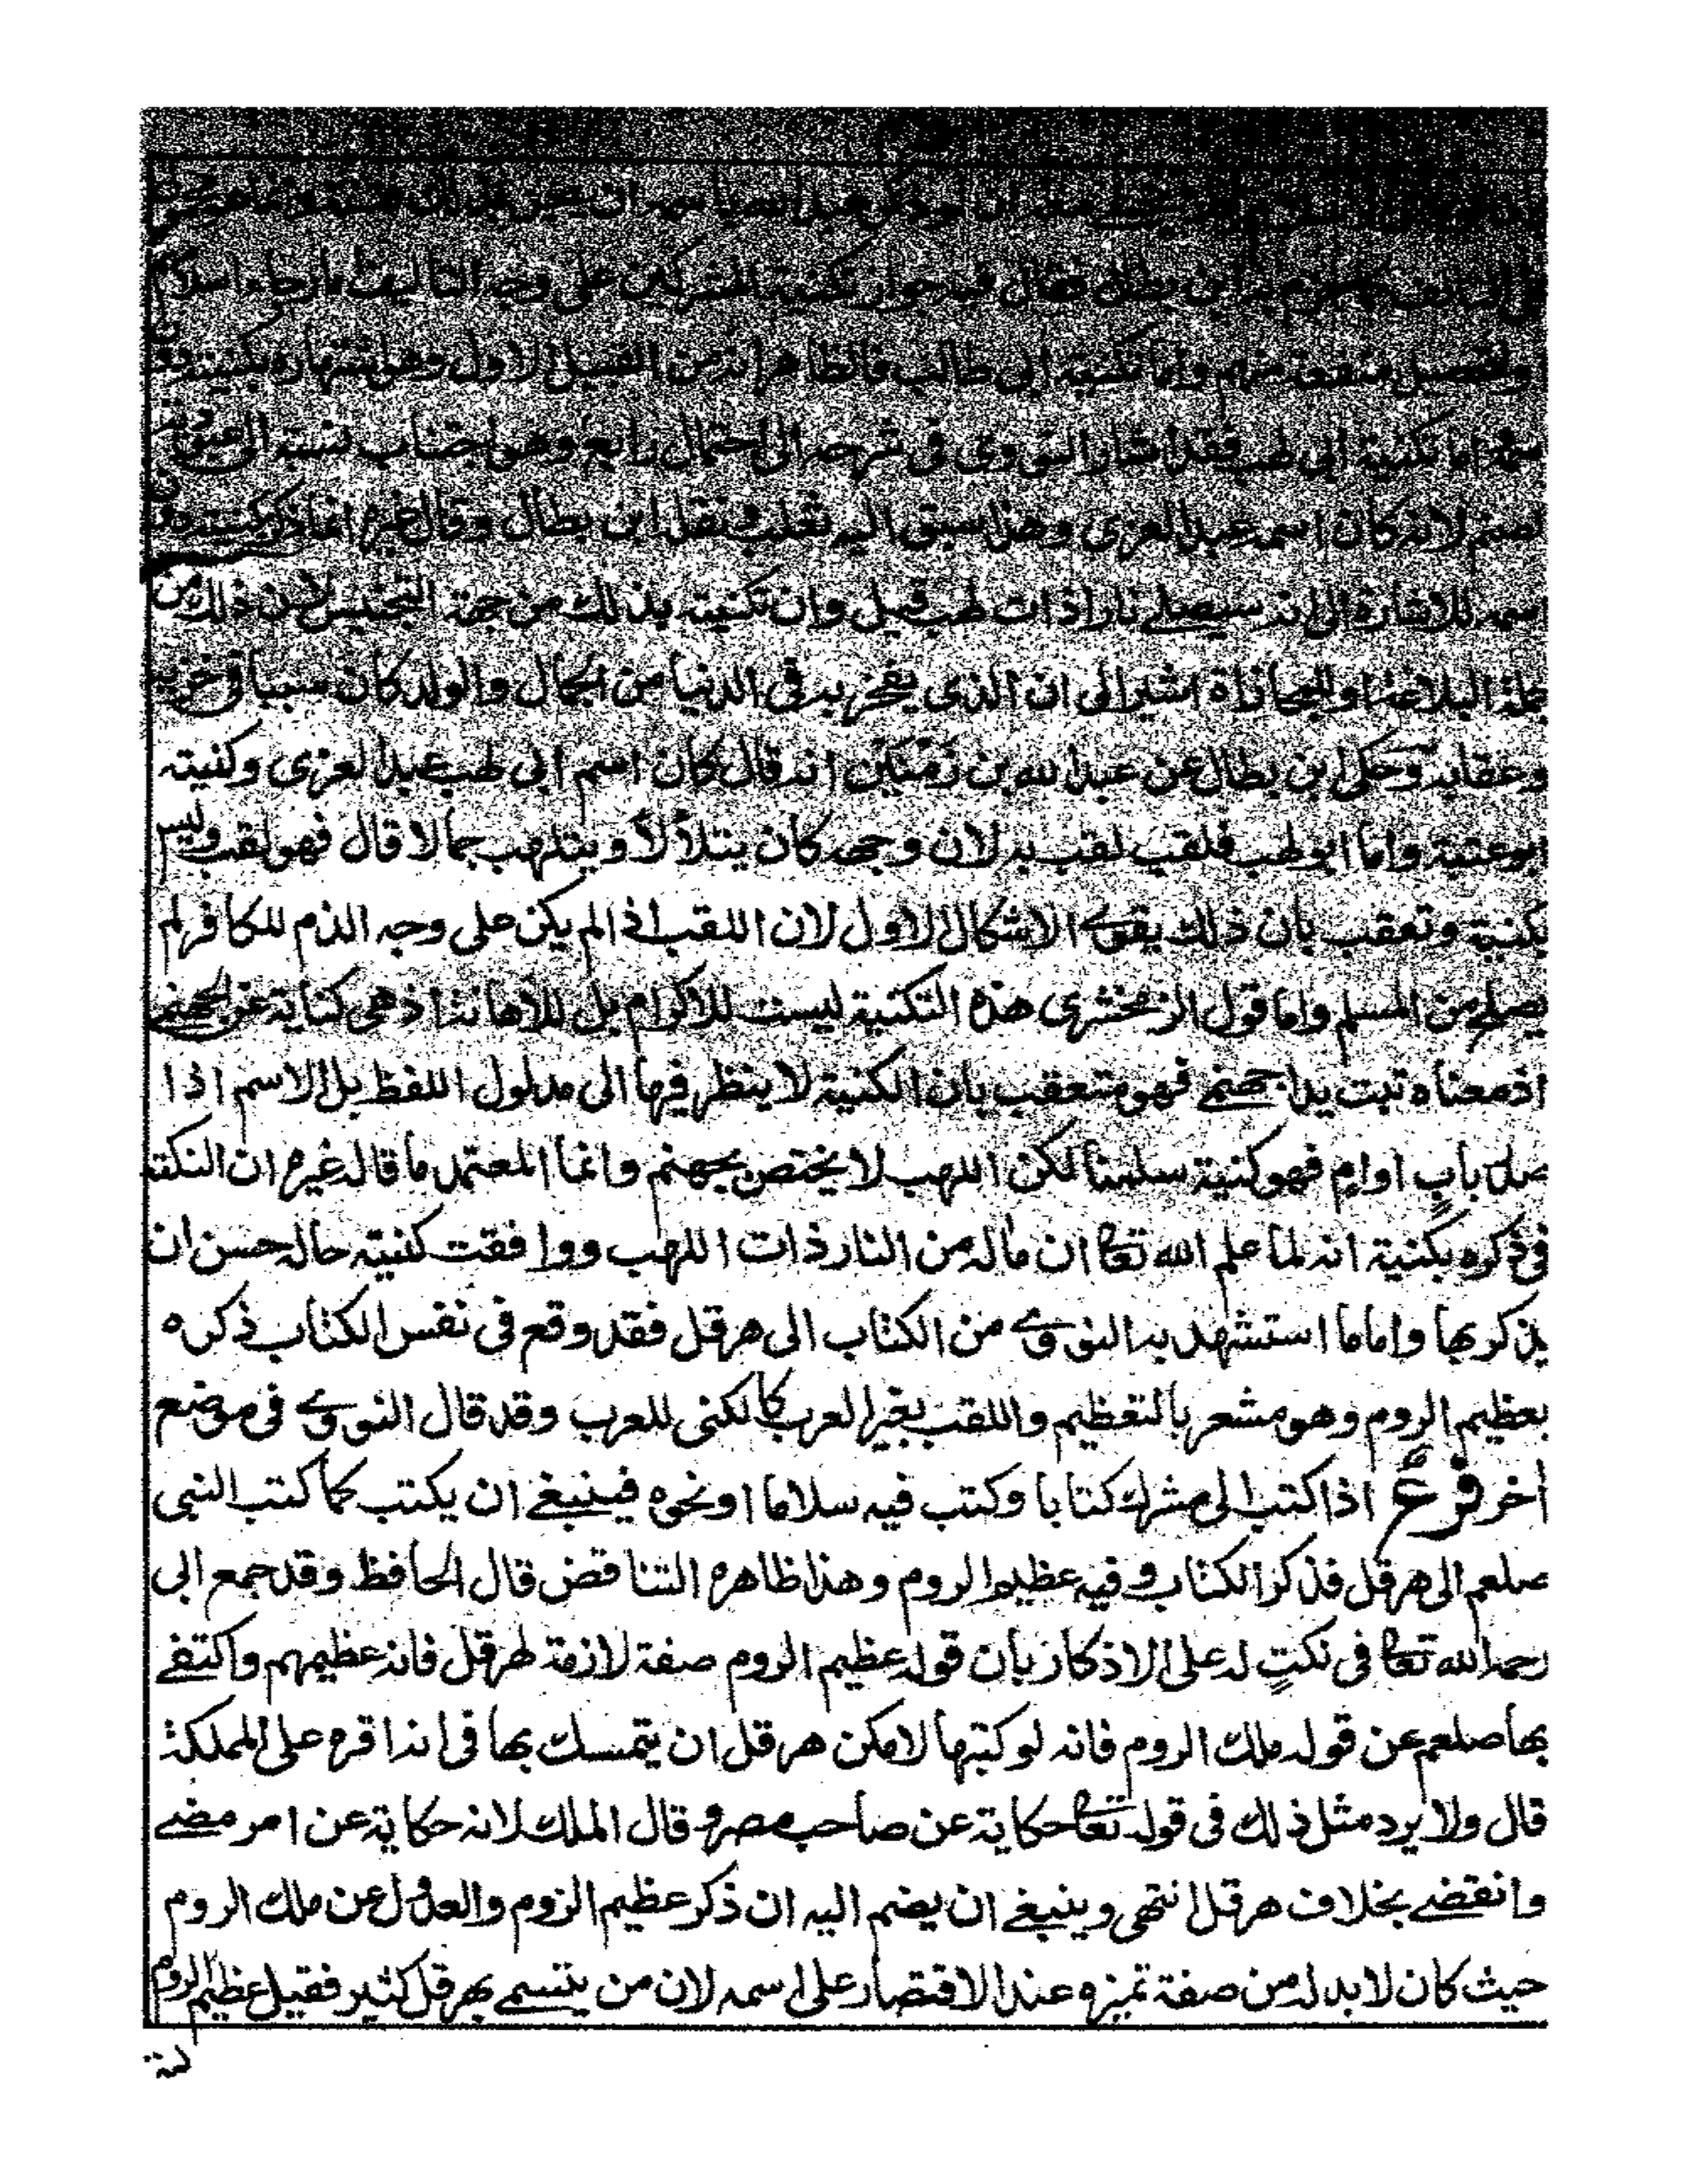 ابن بطال فقال فيه جواز تكنية المشركين على وجه التاليف اما رجاء اسلام
وتحصيل منفعة منهم واما تكنية ابى طالب فالظاهر انه من القبيل الاول وهو اشتهاره بكنيته دون
اسمه اما تكنية ابى لهب فقد اشار النووى فى شرحه الى احتمال رابع وهو اجتناب نسبته الى عبودية
لصنم لانه كان اسمه عبد العزى وهذا سبق اليه ثعلب ونقله ابن بطال وقال غيره انما ذكر بكنيته دون
اسمه للاشارة الى انه سيصلے نارا ذات لهب قيل وان تكنيته بذلك من جهة التجنيس لان ذلك من
جملة البلاغة او للمجازاة اشير الى ان الذى يفخر به فى الدنيا من الجمال والولد كان سببا فى خزيه
وعقابه وحكى ابن بطال عن عبد الله بن زمنين انه قال كان اسم ابى لهب عبد العزى وكنيته
ابو عتبة واما ابو لهب فلقب لقب به لان وجهه كان يتلألأ ويتلهب جمالا قال فهو لقب وليس
بكنية وتعقب بان ذلك يقوى الاشكال الاول لان اللقب اذا لم يكن على وجه الذم للكافر لم
يصلح من المسلم واما قول الزمخشرى هذه التكنية ليست للاكرام بل للاهانة اذ هى كناية عن الجهنم
اذ معناه تبت يدا جهنم فهو متعقب بان الكنية لا ينظر فيها الى مدلول اللفظ بل الاسم اذا
صدر باب او ام فهو كنية سلمنا لكن اللهب لا يختص بجهنم وانما المعتمد ما قاله غيره ان النكتة
فى ذكره بكنية انه لما علم الله تعا ان ماله من النار ذات اللهب ووافقت كنيته حاله حسن ان
يذكر بها واما ما استشهد به النووى من الكتاب الى هرقل فقد وقع فى نفس الكتاب ذكره
بعظيم الروم وهو مشعر بالتعظيم واللقب بغير العرب كالكنى للعرب وقد قال النووى فى موضع
اخر فرع اذا كتب الى مشرك كتابا وكتب فيه سلاما او نحوه فينبغے ان يكتب كما كتب النبى
صلعم الى هرقل فذكر الكتاب وفيه عظيم الروم وهذا ظاهره التناقض قال الحافظ وقد جمع ابى
رحمه الله تعا فى نكتٍ له على الاذكار بان قوله عظيم الروم صفة لازمة لهرقل فانه عظيمهم واكتفے
بها صلعم عن قوله ملك الروم فانه لو كتبها لامكن هرقل ان يتمسك بها فى انه اقره على المملكة
قال ولا يرد مثل ذلك فى قوله تعا حكاية عن صاحب مصر وقال الملك لانه حكاية عن امر مضے
وانقضے بخلاف هرقل انتهى وينبغے ان يضم اليه ان ذكر عظيم الروم والعدول عن ملك الروم
حيث كان لا بد له من صفة تميزه عند الاقتصار على اسمه لان من يتسمے بهرقل كثير فقيل عظيم الروم